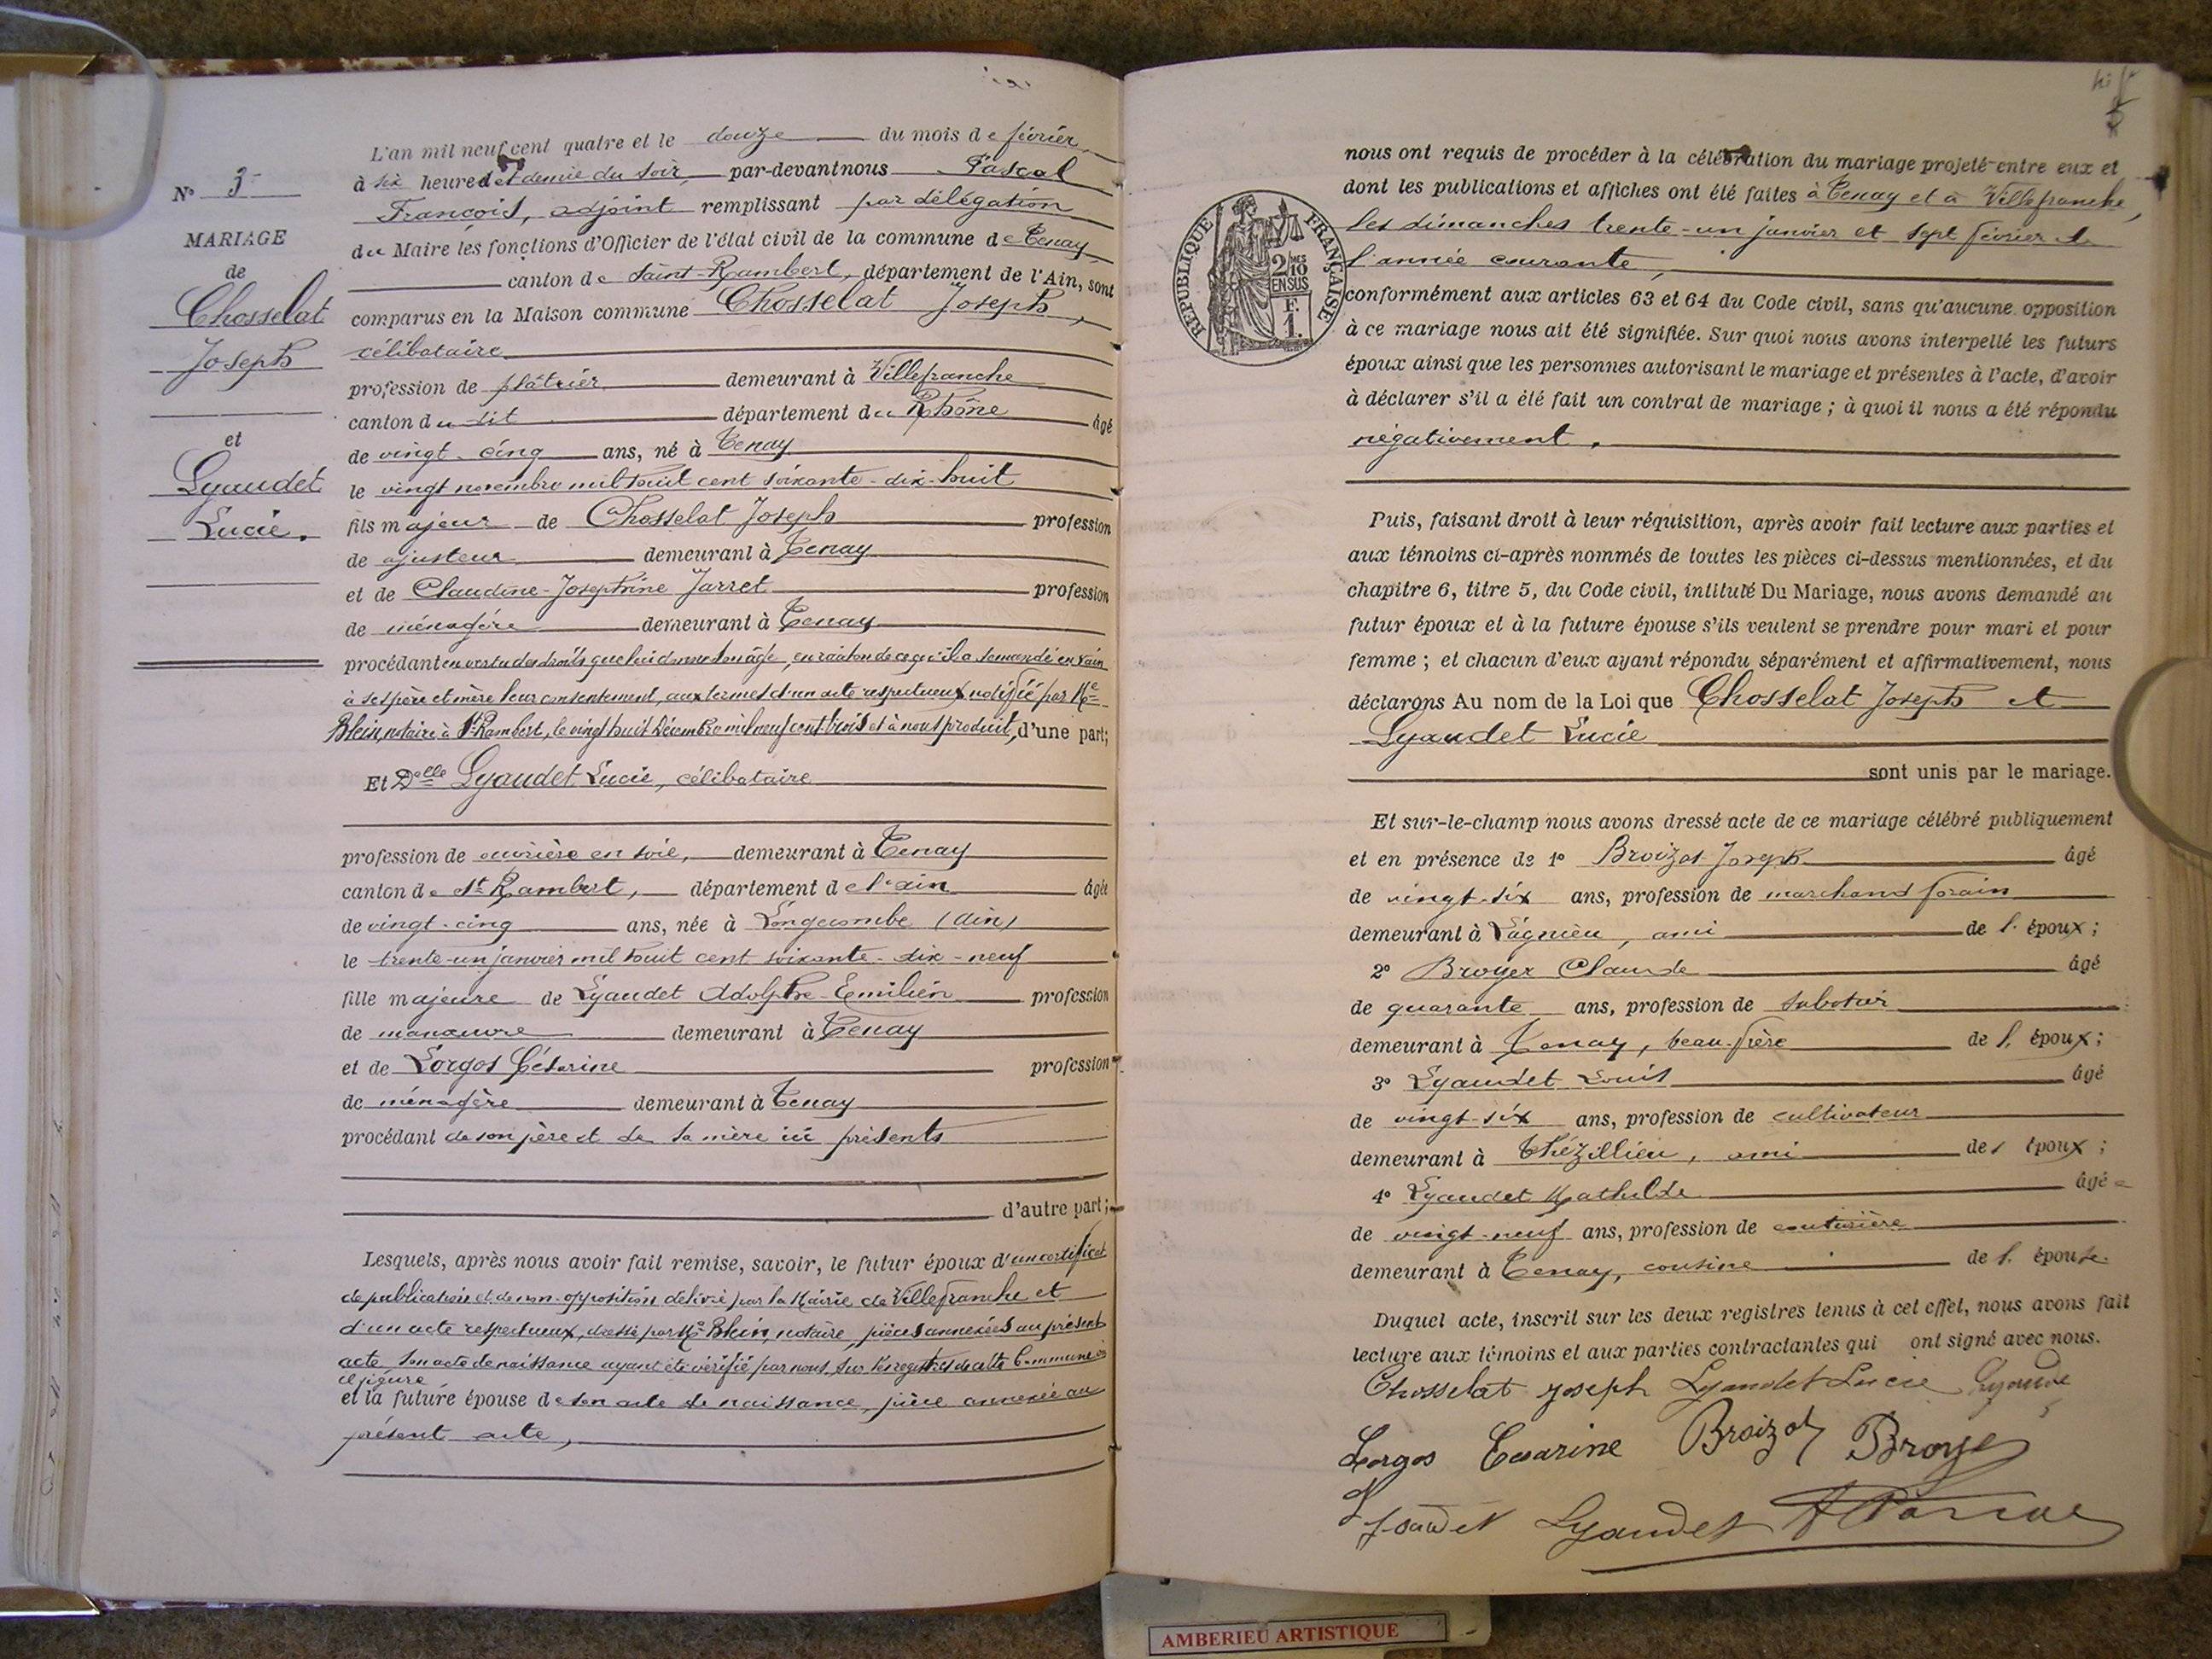 L'an mil neuf cent quatre et le douze du mois de février
à six heures et demie du soir, par-devant nous Pascal
François, adjoint remplissant par délégation
du Maire les fonctions d'Officier de l'état civil de la commune de Tenay,
canton de Saint-Rambert, département de l'Ain, sont
comparus en la Maison commune Chosselat Joseph,
célibataire
profession de plâtrier demeurant à Villefranche
canton du dit département du Rhône âgé
de vingt-cinq ans, né à Tenay
le vingt novembre mil huit cent soixante-dix-huit
fils majeur de Chosselat Joseph profession
de ajusteur demeurant à Tenay
et de Claudine-Joséphine Jarret profession
de ménagère demeurant à Tenay
procédant en vertu des droits que lui donne son âge, en raison de ce qu'il a demandé en vain
à ses père et mère leur consentement, aux termes d'un acte respectueux notifié par Me
Blein, notaire à St Rambert, le vingt huit Décembre mil neuf cent trois et à nous produit, d'une part;
Et Delle Lyaudet Lucie, célibataire
profession de ouvrière en soie, demeurant à Tenay
canton de St Rambert, département de l'ain âgée
de vingt-cinq ans, née à Longecombe (Ain)
le trente-un janvier mil huit cent soixante-dix-neuf
fille majeure de Lyaudet Adolphe-Emilien profession
de manœuvre demeurant à Tenay
et de Lorgos Césarine profession
de ménagère demeurant à Tenay
procédant de son père et de sa mère ici présents
d'autre part;
Lesquels, après nous avoir fait remise, savoir, le futur époux d'un certificat
de publication et de non-opposition délivré par la Mairie de Villefranche et
d'un acte respectueux, dressé par Me Blein, notaire, pièces annexées au présent
acte, son acte de naissance ayant été vérifié par nous sur les registres de cette Commune où
il figure
et la future épouse de son acte de naissance, pièce annexée au
présent acte,
N° 5
MARIAGE
de
Chosselat
Joseph
et
Lyaudet
Lucie.
nous ont requis de procéder à la célébration du mariage projeté entre eux et
dont les publications et affiches ont été faites à Tenay et à Villefranche,
les dimanches trente-un janvier et sept février de
l'année courante,
conformément aux articles 63 et 64 du Code civil, sans qu'aucune opposition
à ce mariage nous ait été signifiée. Sur quoi nous avons interpellé les futurs
époux ainsi que les personnes autorisant le mariage et présentes à l'acte, d'avoir
à déclarer s'il a été fait un contrat de mariage ; à quoi il nous a été répondu
négativement.
Puis, faisant droit à leur réquisition, après avoir fait lecture aux parties et
aux témoins ci-après nommés de toutes les pièces ci-dessus mentionnées, et du
chapitre 6, titre 5, du Code civil, intitulé Du Mariage, nous avons demandé au
futur époux et à la future épouse s'ils veulent se prendre pour mari et pour
femme ; et chacun d'eux ayant répondu séparément et affirmativement, nous
déclarons Au nom de la Loi que Chosselat Joseph et
Lyaudet Lucie
sont unis par le mariage.
Et sur-le-champ nous avons dressé acte de ce mariage célébré publiquement
et en présence de 1° Broizat Joseph âgé
de vingt-six ans, profession de marchand forain
demeurant à Lagnieu, ami de l'époux;
2° Broyer Claude âgé
de quarante ans, profession de sabotier
demeurant à Tenay, beau-frère de l'époux;
3° Lyaudet Louis âgé
de vingt-six ans, profession de cultivateur
demeurant à Thézillieu, ami de l'époux;
4° Lyaudet Mathilde âgée
de vingt-neuf ans, profession de couturière
demeurant à Tenay, cousine de l'épouse
Duquel acte, inscrit sur les deux registres tenus à cet effet, nous avons fait
lecture aux témoins et aux parties contractantes qui ont signé avec nous.
Chosselat joseph Lyaudet Lucie
Lorgos Broizat Broyer
Lyaudet Lyaudet
RÉPUBLIQUE FRANÇAISE
2/10MES
EN SUS
F.
1.
AMBERIEU ARTISTIQUE